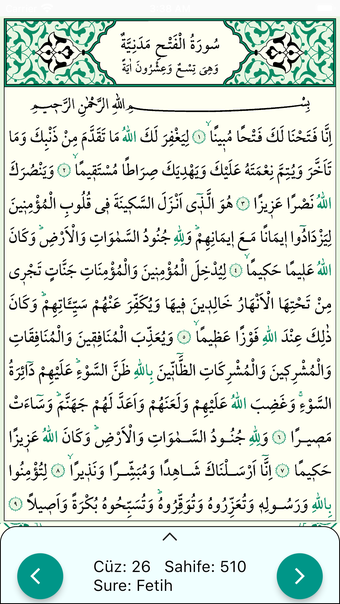 سُورَةُ الْفَتْحِ مَدَنِيَّةٌ
وَهِىَ تِسْعٌ وَعِشْرُونَ اٰيَةً
بِسْــــــــــمِ اللهِ الرَّحْمٰنِ الرَّح۪يمِ
اِنَّا فَتَحْنَا لَكَ فَتْحًا مُب۪ينًاۙ ﴿١﴾ لِيَغْفِرَ لَكَ اللهُ مَا تَقَدَّمَ مِنْ ذَنْبِكَ وَمَا
تَاَخَّرَ وَيُتِمَّ نِعْمَتَهُ عَلَيْكَ وَيَهْدِيَكَ صِرَاطًا مُسْتَق۪يمًاۙ ﴿٢﴾ وَيَنْصُرَكَ
اللهُ نَصْرًا عَز۪يزًا ﴿٣﴾ هُوَ الَّذ۪ٓى اَنْزَلَ السَّك۪ينَةَ ف۪ى قُلُوبِ الْمُؤْمِن۪ينَ
لِيَزْدَادُٓوا ا۪يمَانًا مَعَ ا۪يمَانِهِمْۜ وَلِلهِ جُنُودُ السَّمٰوَاتِ وَالْاَرْضِۜ وَكَانَ
اللهُ عَل۪يمًا حَك۪يمًاۙ ﴿٤﴾ لِيُدْخِلَ الْمُؤْمِن۪ينَ وَالْمُؤْمِنَاتِ جَنَّاتٍ تَجْر۪ى
مِنْ تَحْتِهَا الْاَنْهَارُ خَالِد۪ينَ ف۪يهَا وَيُكَفِّرَ عَنْهُمْ سَيِّـَٔاتِهِمْۜ وَكَانَ
ذٰلِكَ عِنْدَ اللهِ فَوْزًا عَظ۪يمًاۙ ﴿٥﴾ وَيُعَذِّبَ الْمُنَافِق۪ينَ وَالْمُنَافِقَاتِ
وَالْمُشْرِك۪ينَ وَالْمُشْرِكَاتِ الظَّٓانّ۪ينَ بِاللهِ ظَنَّ السَّوْءِۜ عَلَيْهِمْ دَٓائِرَةُ
السَّوْءِۚ وَغَضِبَ اللهُ عَلَيْهِمْ وَلَعَنَهُمْ وَاَعَدَّ لَهُمْ جَهَنَّمَۜ وَسَٓاءَتْ
مَص۪يرًا ﴿٦﴾ وَلِلهِ جُنُودُ السَّمٰوَاتِ وَالْاَرْضِۜ وَكَانَ اللهُ عَز۪يزًا
حَك۪يمًا ﴿٧﴾ اِنَّٓا اَرْسَلْنَاكَ شَاهِدًا وَمُبَشِّرًا وَنَذ۪يرًاۙ ﴿٨﴾ لِتُؤْمِنُوا
بِاللهِ وَرَسُولِه۪ وَتُعَزِّرُوهُ وَتُوَقِّرُوهُۜ وَتُسَبِّحُوهُ بُكْرَةً وَاَص۪يلًا ﴿٩﴾
Cüz: 26 Sahife: 510
Sure: Fetih